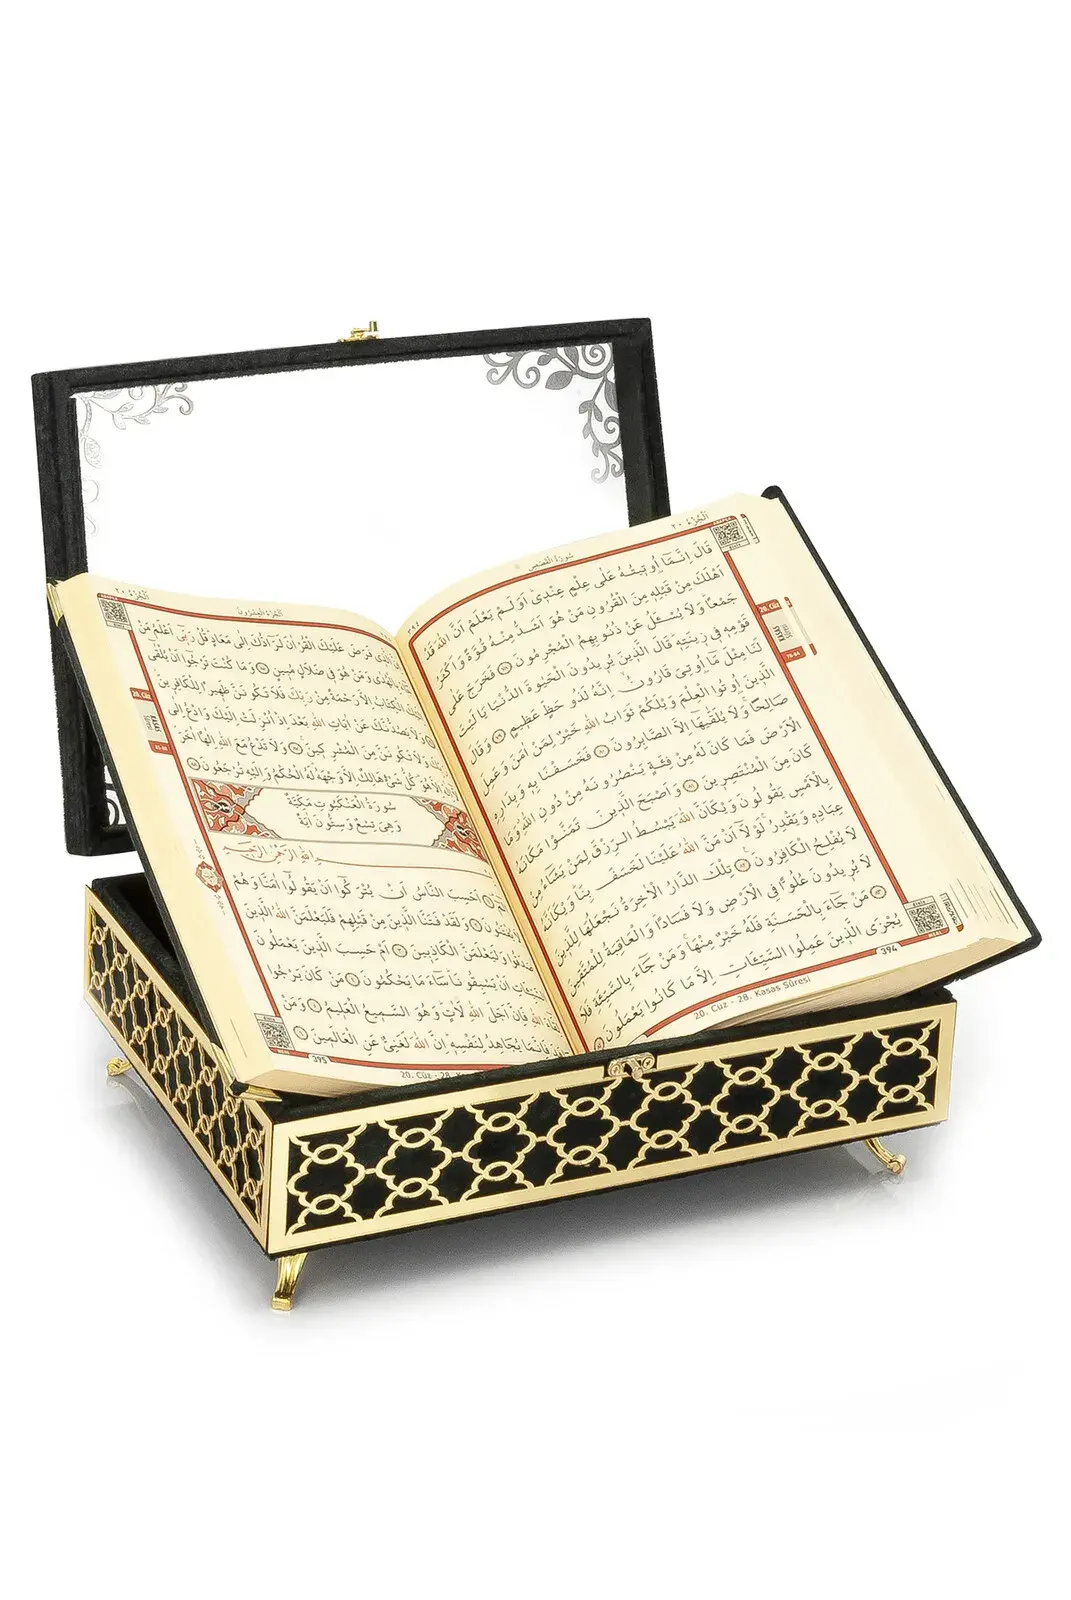 اَلْجُزْءُ ٢٠
سُورَةُ الْقَصَصِ
قَالَ اِنَّمَٓا اُو۫ت۪يتُهُ عَلٰى عِلْمٍ عِنْد۪ي اَوَلَمْ يَعْلَمْ اَنَّ اللّٰهَ قَدْ
اَهْلَكَ مِنْ قَبْلِه۪ مِنَ الْقُرُونِ مَنْ هُوَ اَشَدُّ مِنْهُ قُوَّةً وَاَكْثَرُ
جَمْعًا وَلَا يُسْـَٔلُ عَنْ ذُنُوبِهِمُ الْمُجْرِمُونَ ﴿٧٨﴾ فَخَرَجَ عَلٰى
قَوْمِه۪ ف۪ي ز۪ينَتِه۪ قَالَ الَّذ۪ينَ يُر۪يدُونَ الْحَيٰوةَ الدُّنْيَا يَا لَيْتَ
لَنَا مِثْلَ مَٓا اُو۫تِيَ قَارُونُ اِنَّهُ لَذُو حَظٍّ عَظ۪يمٍ ﴿٧٩﴾ وَقَالَ
الَّذ۪ينَ اُو۫تُوا الْعِلْمَ وَيْلَكُمْ ثَوَابُ اللّٰهِ خَيْرٌ لِمَنْ اٰمَنَ وَعَمِلَ
صَالِحًا وَلَا يُلَقّٰيهَٓا اِلَّا الصَّابِرُونَ ﴿٨٠﴾ فَخَسَفْنَا بِه۪ وَبِدَارِهِ
الْاَرْضَ فَمَا كَانَ لَهُ مِنْ فِئَةٍ يَنْصُرُونَهُ مِنْ دُونِ اللّٰهِ وَمَا
كَانَ مِنَ الْمُنْتَصِر۪ينَ ﴿٨١﴾ وَاَصْبَحَ الَّذ۪ينَ تَمَنَّوْا مَكَانَهُ
بِالْاَمْسِ يَقُولُونَ وَيْكَاَنَّ اللّٰهَ يَبْسُطُ الرِّزْقَ لِمَنْ يَشَٓاءُ مِنْ
عِبَادِه۪ وَيَقْدِرُ لَوْلَٓا اَنْ مَنَّ اللّٰهُ عَلَيْنَا لَخَسَفَ بِنَا وَيْكَاَنَّهُ
لَا يُفْلِحُ الْكَافِرُونَ ﴿٨٢﴾ تِلْكَ الدَّارُ الْاٰخِرَةُ نَجْعَلُهَا لِلَّذ۪ينَ
لَا يُر۪يدُونَ عُلُوًّا فِي الْاَرْضِ وَلَا فَسَادًا وَالْعَاقِبَةُ لِلْمُتَّق۪ينَ
﴿٨٣﴾ مَنْ جَٓاءَ بِالْحَسَنَةِ فَلَهُ خَيْرٌ مِنْهَا وَمَنْ جَٓاءَ بِالسَّيِّئَةِ فَلَا
يُجْزَى الَّذ۪ينَ عَمِلُوا السَّيِّـَٔاتِ اِلَّا مَا كَانُوا يَعْمَلُونَ
20. Cüz
KASAS
Sûresi
78-84
394
20. Cüz - 28. Kasas Sûresi
اَلْجُزْءُ ٢٠
الَّذ۪ي فَرَضَ عَلَيْكَ الْقُرْاٰنَ لَرَٓادُّكَ اِلٰى مَعَادٍ قُلْ رَبّ۪ٓي اَعْلَمُ مَنْ
بِالْهُدٰى وَمَنْ هُوَ ف۪ي ضَلَالٍ مُب۪ينٍ ﴿٨٥﴾ وَمَا كُنْتَ تَرْجُٓوا اَنْ يُلْقٰٓى
الْكِتَابُ اِلَّا رَحْمَةً مِنْ رَبِّكَ فَلَا تَكُونَنَّ ظَه۪يرًا لِلْكَافِر۪ينَ
وَلَا يَصُدُّنَّكَ عَنْ اٰيَاتِ اللّٰهِ بَعْدَ اِذْ اُنْزِلَتْ اِلَيْكَ وَادْعُ اِلٰى
وَلَا تَكُونَنَّ مِنَ الْمُشْرِك۪ينَ ﴿٨٧﴾ وَلَا تَدْعُ مَعَ اللّٰهِ اِلٰهًا اٰخَرَ
اِلَّا هُوَ كُلُّ شَيْءٍ هَالِكٌ اِلَّا وَجْهَهُ لَهُ الْحُكْمُ وَاِلَيْهِ تُرْجَعُونَ ﴿٨٨﴾
سُورَةُ الْعَنْكَبُوتِ مَكِّيَّةٌ
وَهِيَ تِسْعٌ وَسِتُّونَ اٰيَةً
بِسْمِ اللّٰهِ الرَّحْمٰنِ الرَّح۪يمِ
اَحَسِبَ النَّاسُ اَنْ يُتْرَكُٓوا اَنْ يَقُولُٓوا اٰمَنَّا وَهُمْ
وَلَقَدْ فَتَنَّا الَّذ۪ينَ مِنْ قَبْلِهِمْ فَلَيَعْلَمَنَّ اللّٰهُ الَّذ۪ينَ
صَدَقُوا وَلَيَعْلَمَنَّ الْكَاذِب۪ينَ ﴿٣﴾ اَمْ حَسِبَ الَّذ۪ينَ يَعْمَلُونَ
السَّيِّـَٔاتِ اَنْ يَسْبِقُونَا سَٓاءَ مَا يَحْكُمُونَ ﴿٤﴾ مَنْ كَانَ يَرْجُوا
لِقَٓاءَ اللّٰهِ فَاِنَّ اَجَلَ اللّٰهِ لَاٰتٍ وَهُوَ السَّم۪يعُ الْعَل۪يمُ ﴿٥﴾ وَمَنْ
جَاهَدَ فَاِنَّمَا يُجَاهِدُ لِنَفْسِه۪ اِنَّ اللّٰهَ لَغَنِيٌّ عَنِ الْعَالَم۪ينَ ﴿٦﴾
20. Cüz
KASAS
Sûresi
85-88
395
20. Cüz - 28. Ka